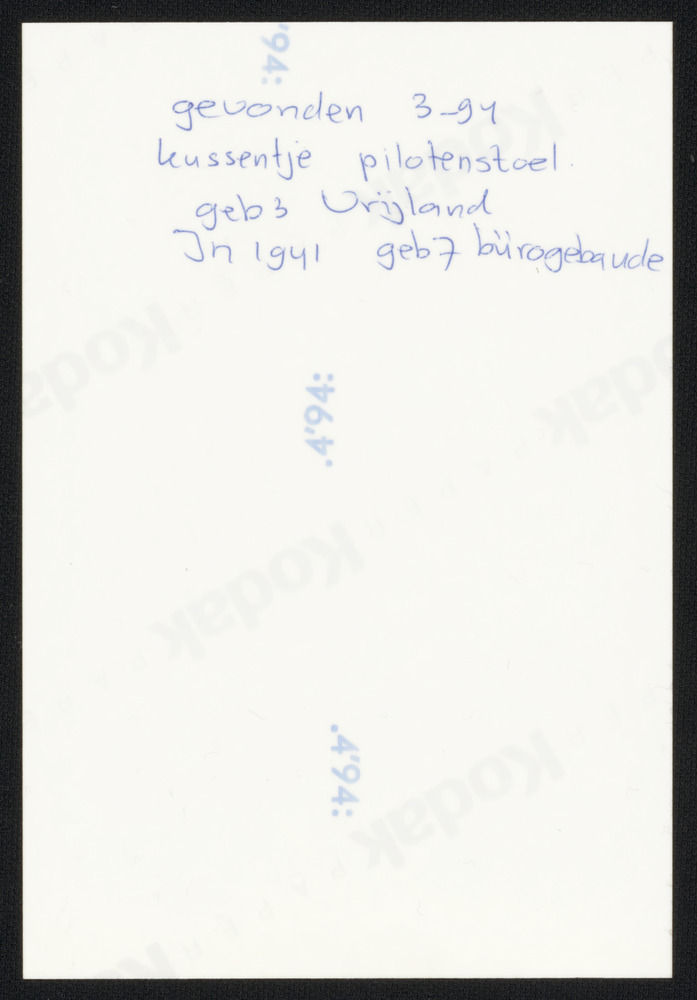 '94:
gevonden 3-94
kussentje pilotenstoel.
geb 3 Vrijland
In 1941 geb 7 bürogebaude
.4'94:
.4'94:
Kodak
Kodak
Kodak
Kodak
Kodak